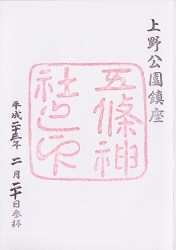 上野公園鎮座
五條神
社之印
平成二十三年二月二十日参拝